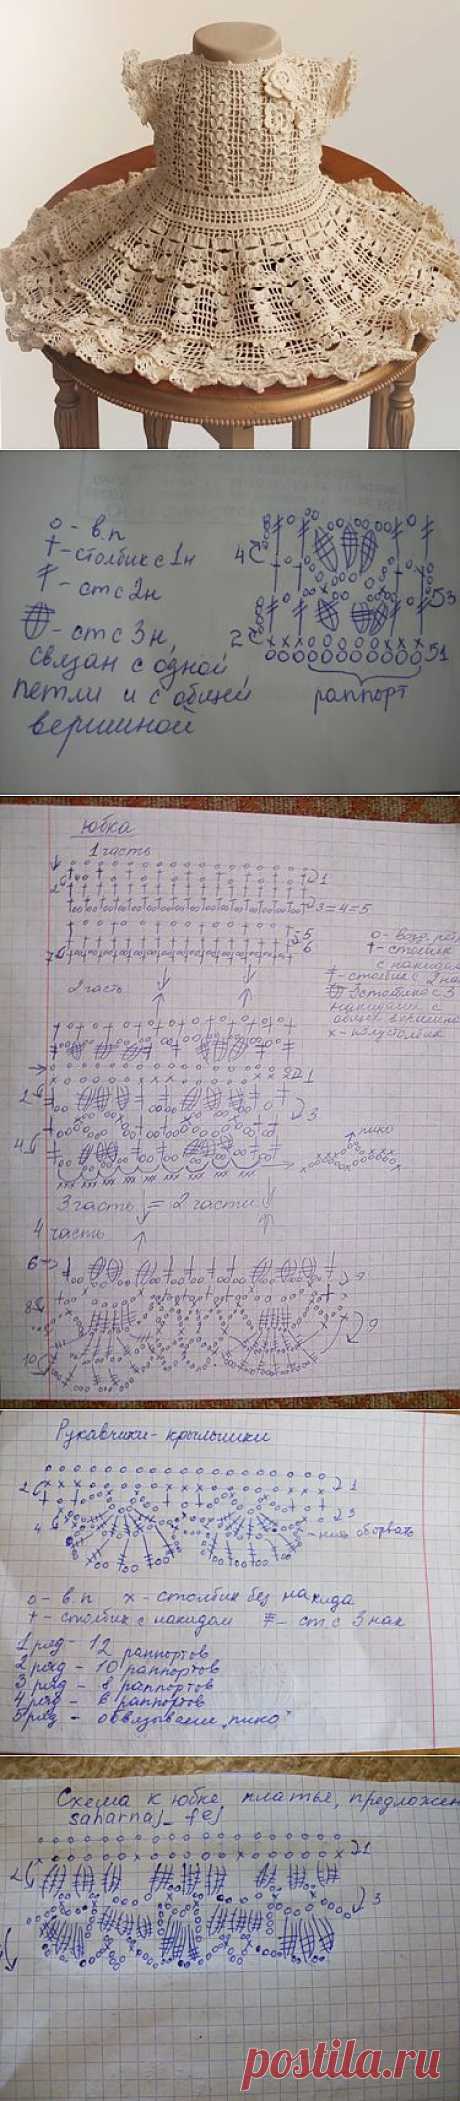 о - в.п
† - столбик с 1н
ст с 2н
- ст с 3н
связан с одной
петли и с общей
вершиной
4
3
2
1
раппорт
юбка
1 часть
1
2
3=4=5
5
6
7
2 часть
о - возд.
† - столбик
с накидом
- столбик с 2 нак
3 столбика с 3
накидами с
общей вершиной
х - полустолбик
1
2
3
4
пико
3 часть = 2 части
4 часть
6
7
8
9
10
Рукавчики - крылышки
2
1
3
4
нить оборвать
о - в.п х - столбик без накида
† - столбик с накидом - ст.с 3 нак
1 ряд - 12 раппортов
2 ряд - 10 раппортов
3 ряд - 8 раппортов
4 ряд - 6 раппортов
5 ряд - обвязываем "пико"
Схема к юбке платья, предложен
saharnaj_fej
1
2
3
postila.ru